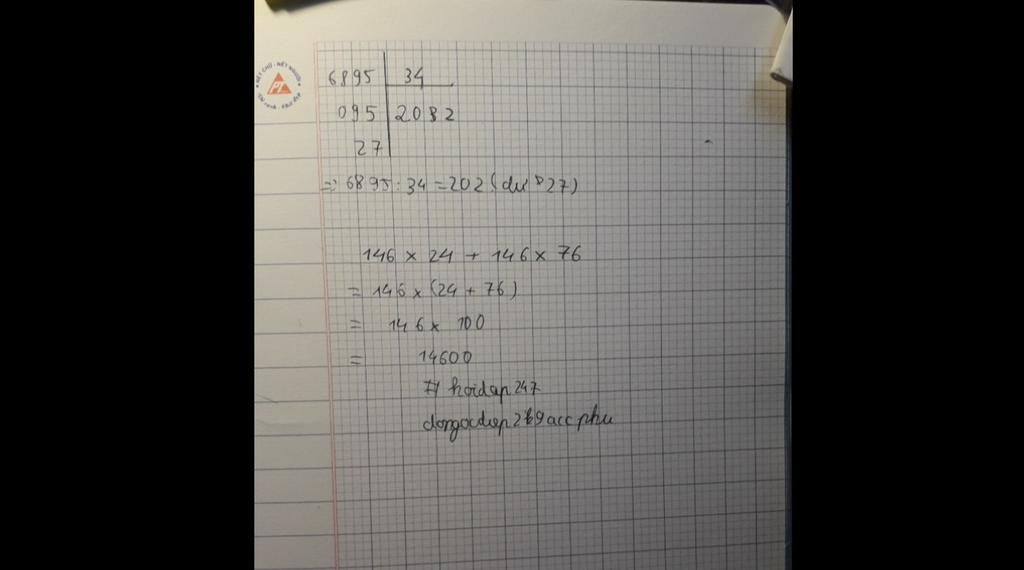 NÉT CHỮ - NẾT NGƯỜI
PT
6895 34
095 2082
27
=> 6895 : 34 = 202 (dư 27)
146 × 24 + 146 × 76
= 146 × (24 + 76)
= 146 × 100
= 14600
# hoidap247